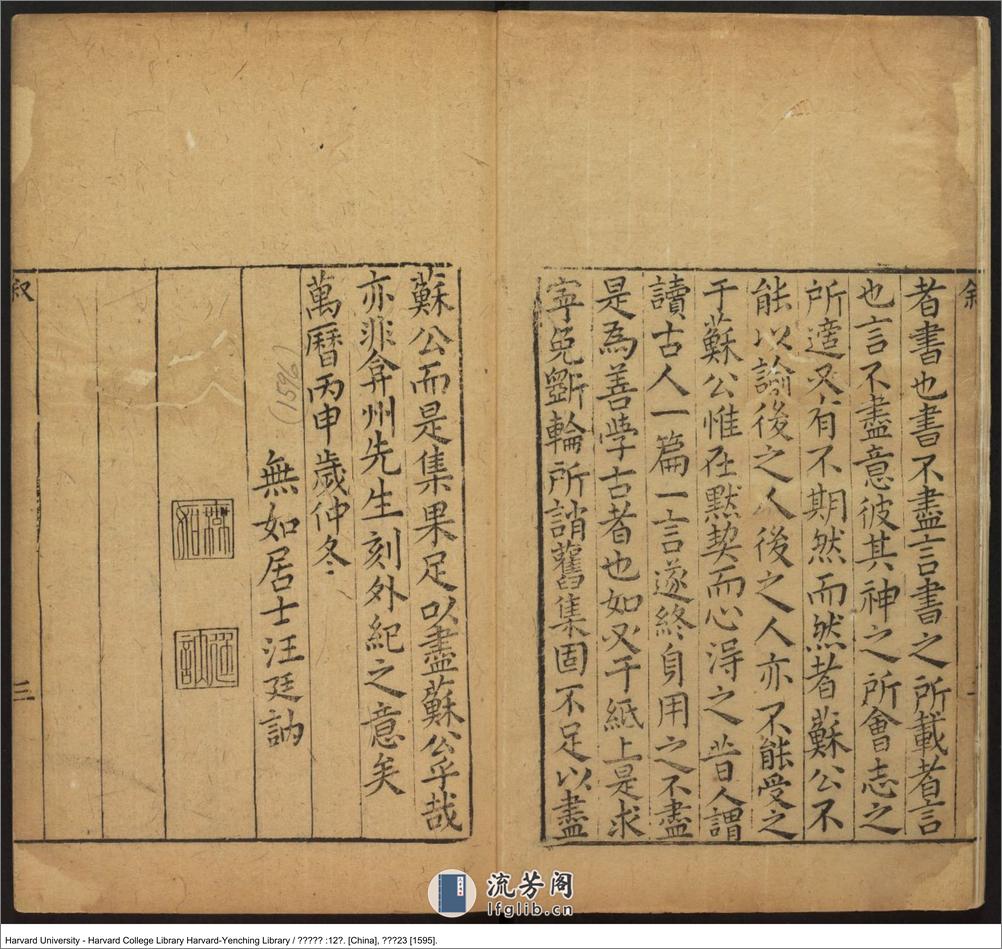 者書也書不盡言書之所載者言
也言不盡意彼其神之所會志之
所適又有不期然而然者蘇公不
能以諭後之人後之人亦不能受之
于蘇公惟在默契而心得之昔人謂
讀古人一篇一言遂終身用之不盡
是為善學古者也如又于紙上是求
寧免斲輪所誚舊集固不足以盡
蘇公而是集果足以盡蘇公乎哉
亦非弇州先生刻外紀之意矣
萬曆丙申歲仲冬
(1596)
無如居士汪廷訥
無如
廷訥
叙
三
流芳阁
lfglib.cn
Harvard University - Harvard College Library Harvard-Yenching Library / ????? :12?. [China], ???23 [1595].